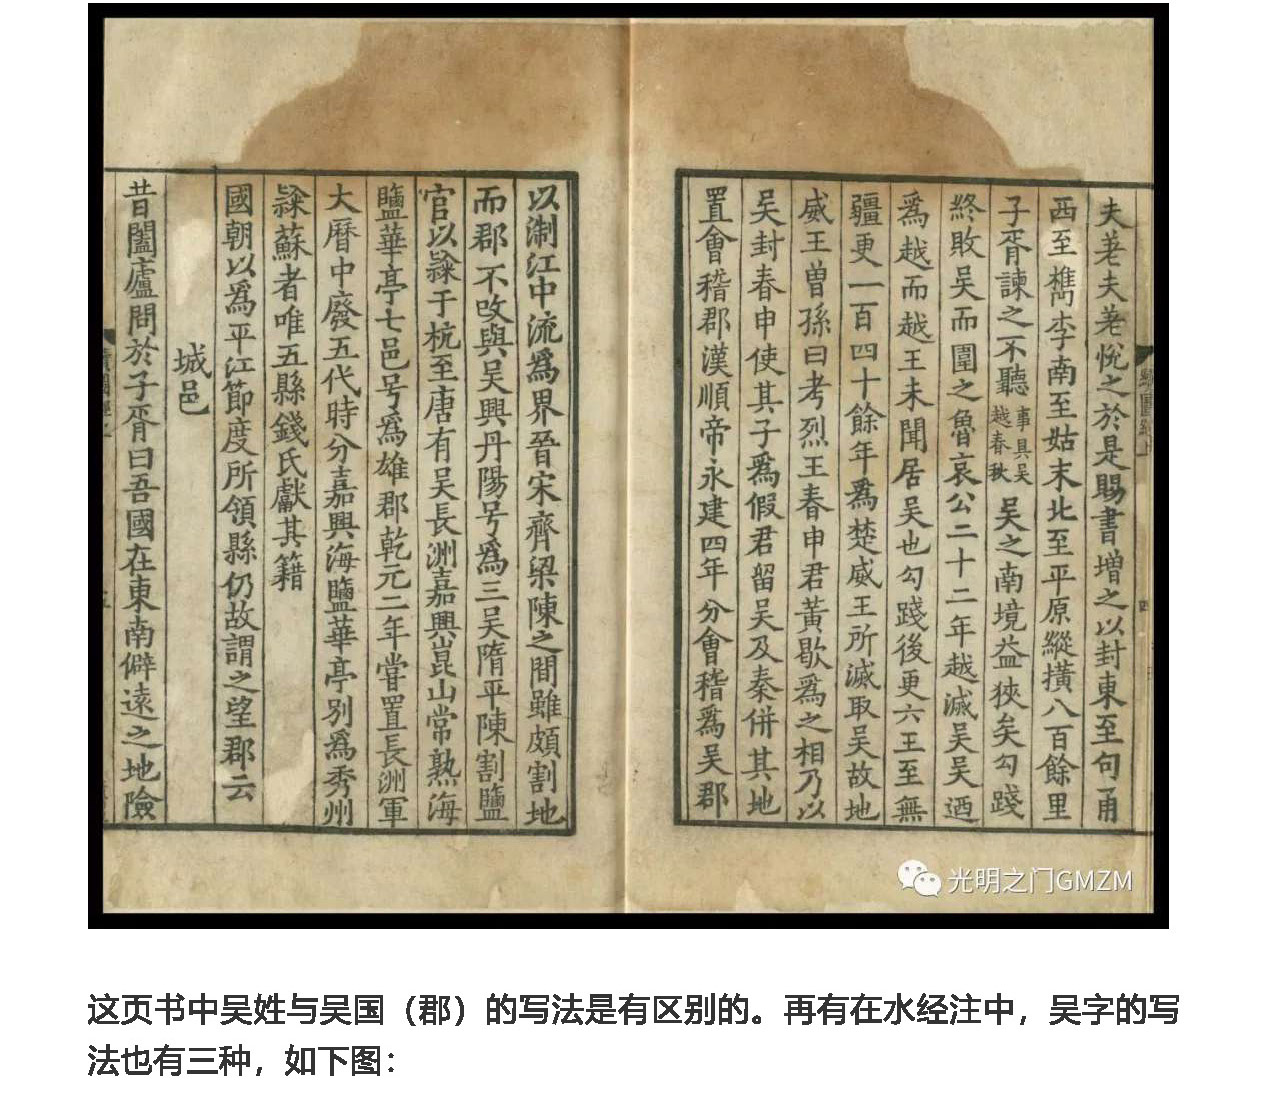 夫荖夫荖悅之於是賜書增之以封東至句甬
西至檇李南至姑末北至平原縱撗八百餘里
子胥諫之不聽事具吴越春秋吴之南境益狹矣勾踐
終敗吴而圍之魯哀公二十二年越滅吴吴迺
爲越而越王未聞居吴也勾踐後更六王至無
疆更一百四十餘年爲楚威王所滅取吴故地
威王曾孫曰考烈王春申君黃歇爲之相乃以
吴封春申使其子爲假君留吴及秦併其地
置會稽郡漢順帝永建四年分會稽爲吴郡
以淛江中流爲界晉宋齊梁陳之間雖頗割地
而郡不攺與吴興丹陽号爲三吴隋平陳割鹽
官以隸于杭至唐有吴長洲嘉興崑山常熟海
鹽華亭七邑号爲雄郡乾元二年嘗置長洲軍
大曆中廢五代時分嘉興海鹽華亭別爲秀州
隸蘇者唯五縣錢氏獻其籍
國朝以爲平江節度所領縣仍故謂之望郡云
城邑
昔闔廬問於子胥曰吾國在東南僻遠之地險
光明之门GMZM
这页书中吴姓与吴国（郡）的写法是有区别的。再有在水经注中，吴字的写
法也有三种，如下图：